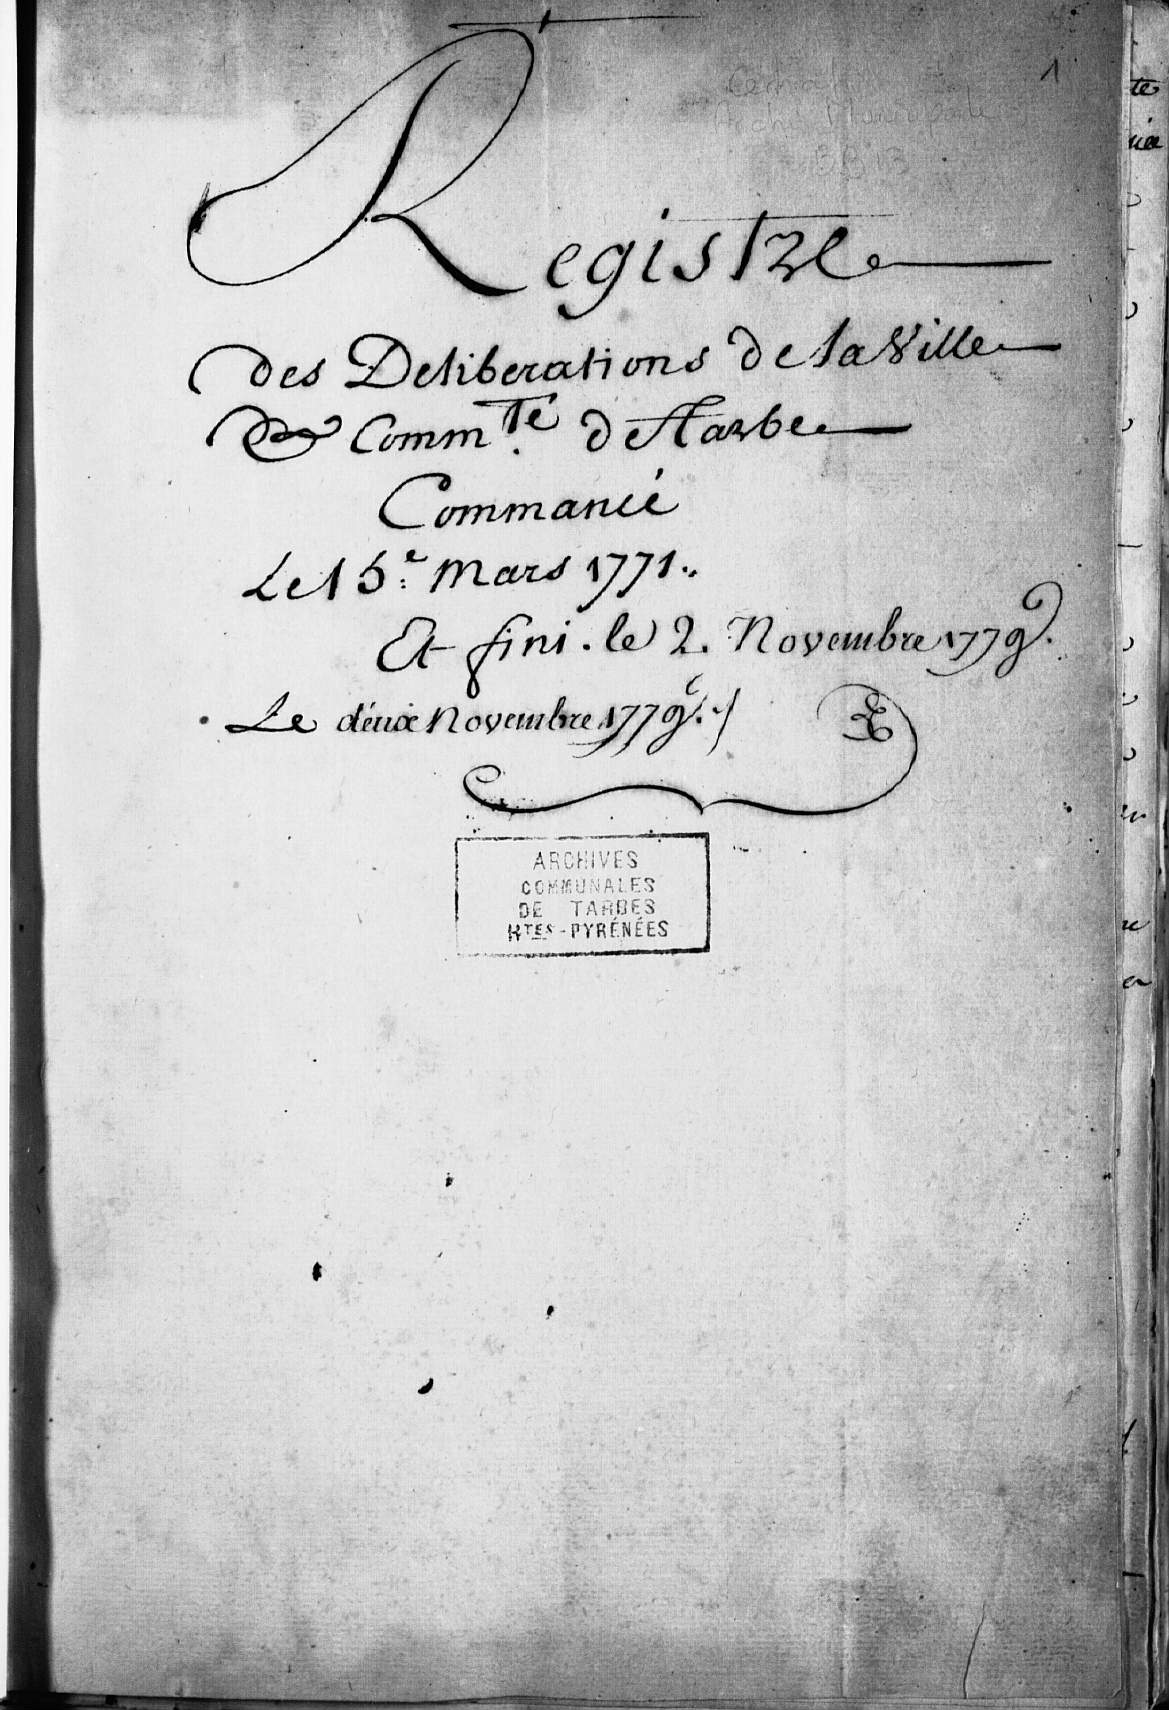 1
Registre
des Deliberations de la Ville
& Comm.té de Tarbe
Commancé
Le 15.e Mars 1771.
Et fini . le 2. Novembre 1779.
Le deux Novembre 1779.
ARCHIVES
COMMUNALES
DE TARBES
HTES-PYRÉNÉES